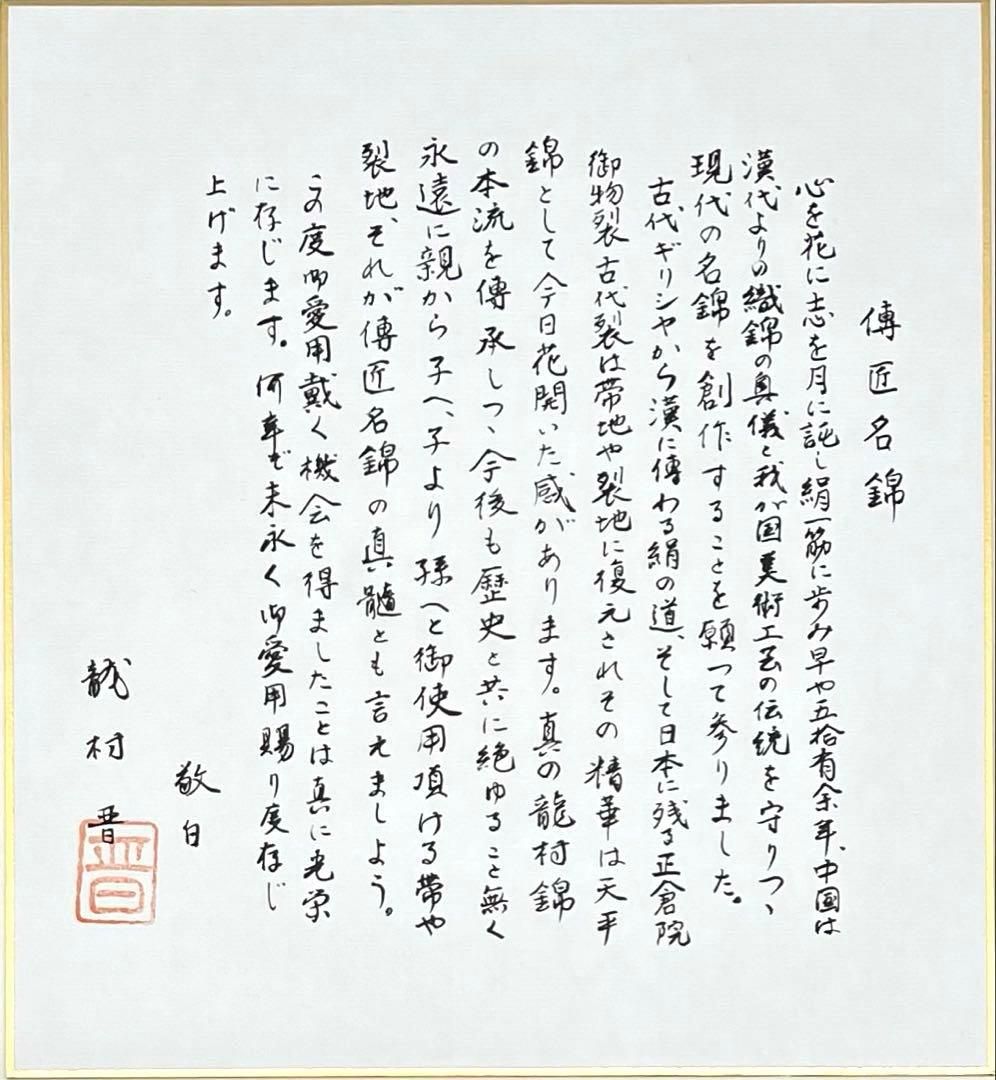 傳匠名錦
心を花に志を月に託し絹一筋に歩み早や五拾有余年、中国は
漢代よりの織錦の奥儀と我が国美術工芸の伝統を守りつゝ
現代の名錦を創作することを願って参りました。
古代ギリシャから漢に傳わる絹の道、そして日本に残る正倉院
御物裂古代裂は帯地や裂地に復元されその精華は天平
錦として今日花開いた感があります。真の龍村錦
の本流を傳承しつゝ今後も歴史と共に絶ゆること無く
永遠に親から子へ、子より孫へと御使用頂ける帯や
裂地、それが傳匠名錦の真髄とも言えましよう。
この度御愛用戴く機会を得ましたことは真に光栄
に存じます。何卒幾末永く御愛用賜り度存じ
上げます。
敬白
龍村晋
晋